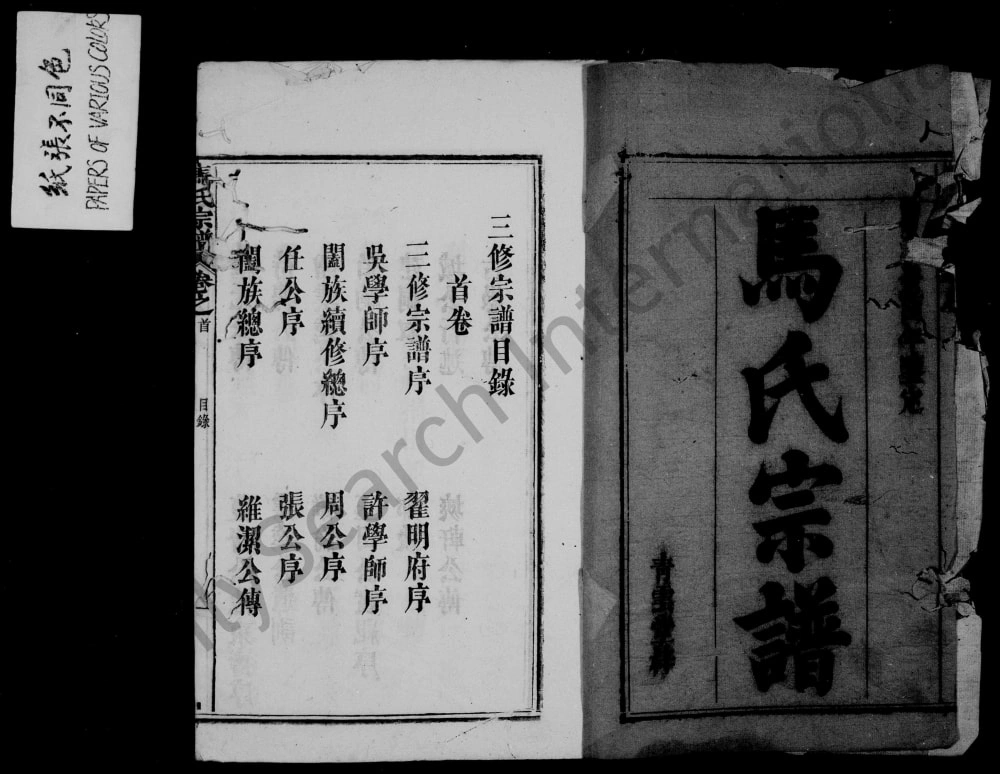 紙張不同色
PAPERS OF VARIOUS COLORS
馬氏宗譜
青雲堂梓
三修宗譜目錄
首卷
三修宗譜序 翟明府序
吳學師序 許學師序
闔族續修總序 周公序
任公序 張公序
闔族總序 維潔公傳
馬氏宗譜 卷之首 目錄